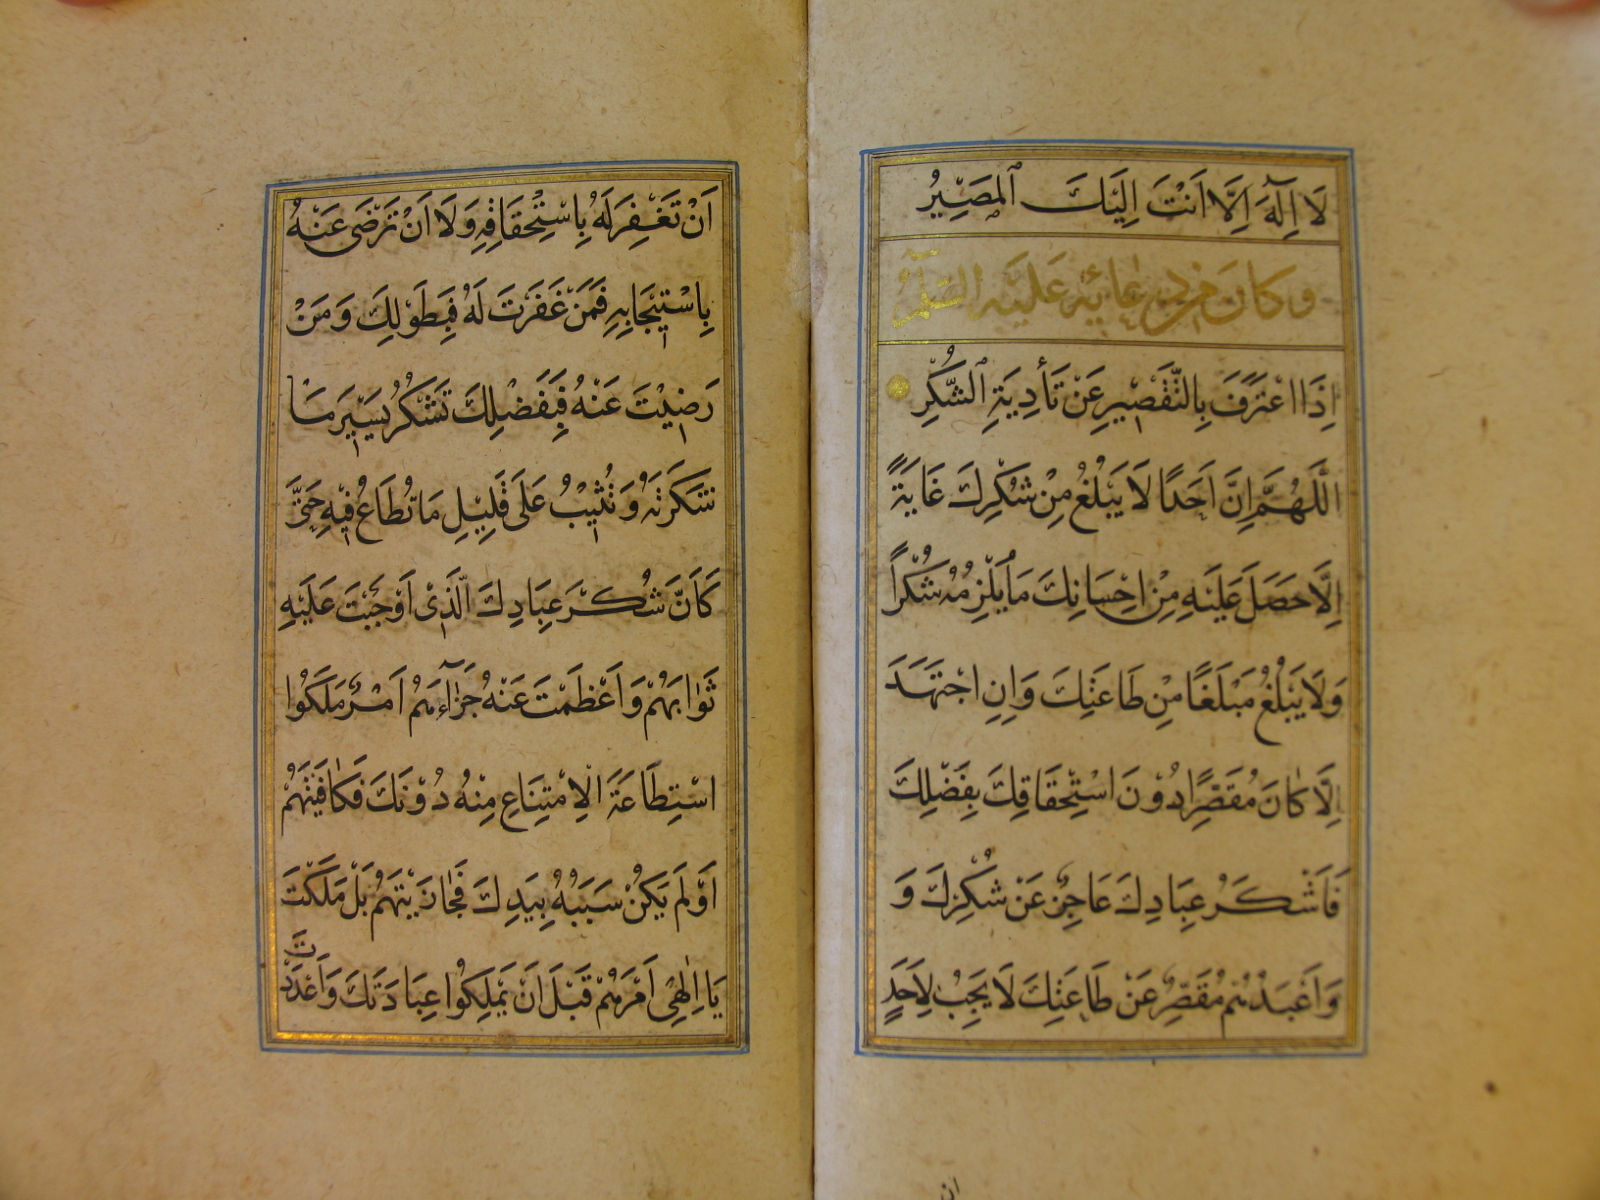 لَا اِلٰهَ اِلَّا اَنْتَ اِلَيْكَ الْمَصِيْرُ
وَكَانَ مِنْ دُعَائِهِ عَلَيْهِ السَّلٰمُ
اِذَا اعْتَرَفَ بِالتَّقْصِيْرِ عَنْ تَأْدِيَةِ الشُّكْرِ
اَللّٰهُمَّ اِنَّ اَحَدًا لَا يَبْلُغُ مِنْ شُكْرِكَ غَايَةً
اِلَّا حَصَلَ عَلَيْهِ مِنْ اِحْسَانِكَ مَا يُلْزِمُهُ شُكْرًا
وَلَا يَبْلُغُ مَبْلَغًا مِنْ طَاعَتِكَ وَاِنِ اجْتَهَدَ
اِلَّا كَانَ مُقَصِّرًا دُوْنَ اسْتِحْقَاقِكَ بِفَضْلِكَ
فَاَشْكَرُ عِبَادِكَ عَاجِزٌ عَنْ شُكْرِكَ وَ
وَاَعْبَدُهُمْ مُقَصِّرٌ عَنْ طَاعَتِكَ لَا يَجِبُ لِاَحَدٍ
ان
اَنْ تَغْفِرَ لَهُ بِاسْتِحْقَاقِهِ وَلَا اَنْ تَرْضٰى عَنْهُ
بِاسْتِيْجَابِهِ فَمَنْ غَفَرْتَ لَهُ فَبِطَوْلِكَ وَمَنْ
رَضِيْتَ عَنْهُ فَبِفَضْلِكَ تَشْكُرُ يَسِيْرَ مَا
شَكَرْتَهُ وَتُثِيْبُ عَلٰى قَلِيْلِ مَا تُطَاعُ فِيْهِ حَتّٰى
كَاَنَّ شُكْرَ عِبَادِكَ الَّذِيْ اَوْجَبْتَ عَلَيْهِ
ثَوَابَهُمْ وَاَعْظَمْتَ عَنْهُ جَزَاءَهُمْ اَمْرٌ مَلَكُوا
اسْتِطَاعَةَ الْاِمْتِنَاعِ مِنْهُ دُوْنَكَ فَكَافَيْتَهُمْ
اَوْ لَمْ يَكُنْ سَبَبُهُ بِيَدِكَ فَجَازَيْتَهُمْ بَلْ مَلَكْتَ
يَا اِلٰهِيْ اَمْرَهُمْ قَبْلَ اَنْ يَمْلِكُوا عِبَادَتَكَ وَاَعْدَدْتَ